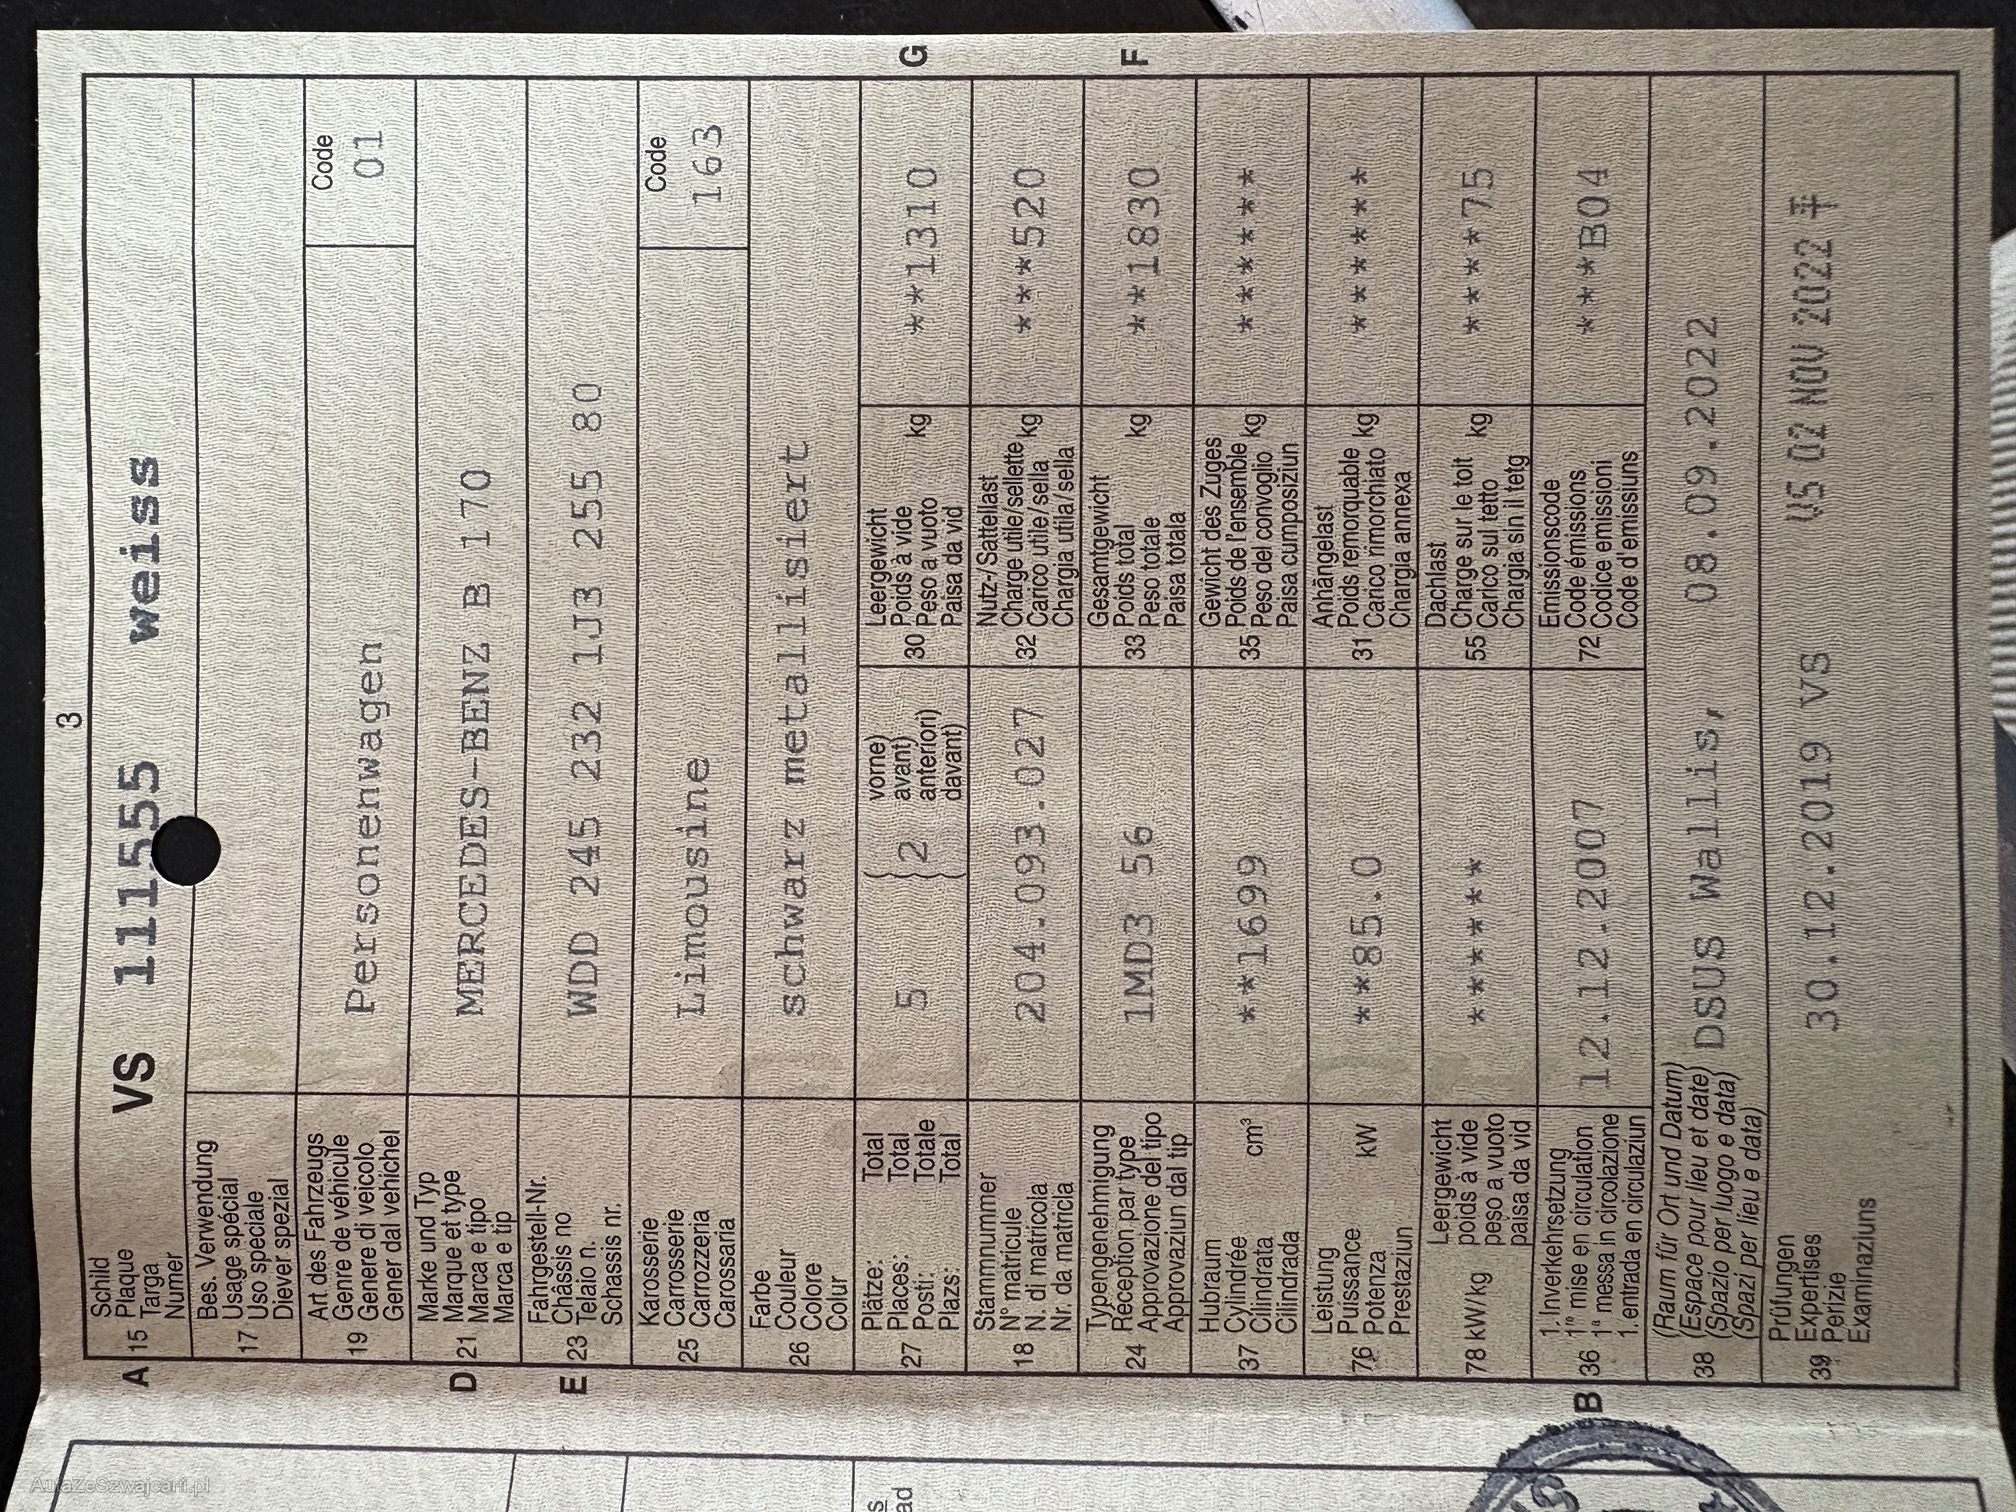 3
Schild
A 15 Plaque VS 111555 weiss
Targa
Numer
Bes. Verwendung
17 Usage spécial
Uso speciale
Diever spezial
Art des Fahrzeugs Code
19 Genre de véhicule Personenwagen 01
Genere di veicolo
Gener dal vehichel
Marke und Typ
D 21 Marque et type MERCEDES-BENZ B 170
Marca e tipo
Marca e tip
Fahrgestell-Nr.
E 23 Châssis no WDD 245 232 1J3 255 80
Telaio n.
Schassis nr.
Karosserie Code
25 Carrosserie Limousine 163
Carrozzeria
Carossaria
Farbe
26 Couleur schwarz metallisiert
Colore
Colur
Plätze: Total vorne) Leergewicht
27 Places: Total 5 2 avant) 30 Poids à vide kg **1310 G
Posti: Totale anteriori) Peso a vuoto
Plazs: Total davant) Paisa da vid
Stammnummer Nutz-/Sattellast
18 N° matricule 204.093.027 32 Charge utile/sellette kg ***520
N. di matricola Carico utile/sella
Nr. da matricla Chargia utila/sella
Typengenehmigung Gesamtgewicht
24 Réception par type 1MD3 56 33 Poids total kg **1830 F
Approvazione del tipo Peso totale
Approvaziun dal tip Paisa totala
Hubraum Gewicht des Zuges
37 Cylindrée cm³ **1699 35 Poids de l'ensemble kg ******
Cilindrata Peso del convoglio
Cilindrada Paisa cumposiziun
Leistung Anhängelast
76 Puissance kW **85.0 31 Poids remorquable kg ******
Potenza Carico rimorchiato
Prestaziun Chargia annexa
Leergewicht Dachlast
78 kW/kg poids à vide ****** 55 Charge sur le toit kg ****75
peso a vuoto Carico sul tetto
paisa da vid Chargia sin il tetg
1. Inverkehrsetzung Emissionscode
B 36 1re mise en circulation 12.12.2007 72 Code émissions ***B04
1a messa in circolazione Codice emissioni
1. entrada en circulaziun Code d'emissiuns
(Raum für Ort und Datum)
38 (Espace pour lieu et date) DSUS Wallis, 08.09.2022
(Spazio per luogo e data)
(Spazi per lieu e data)
Prüfungen
39 Expertises 30.12.2019 VS VS 02 NOV 2022
Perizie
Examinaziuns
AutaZeSzwajcarii.pl